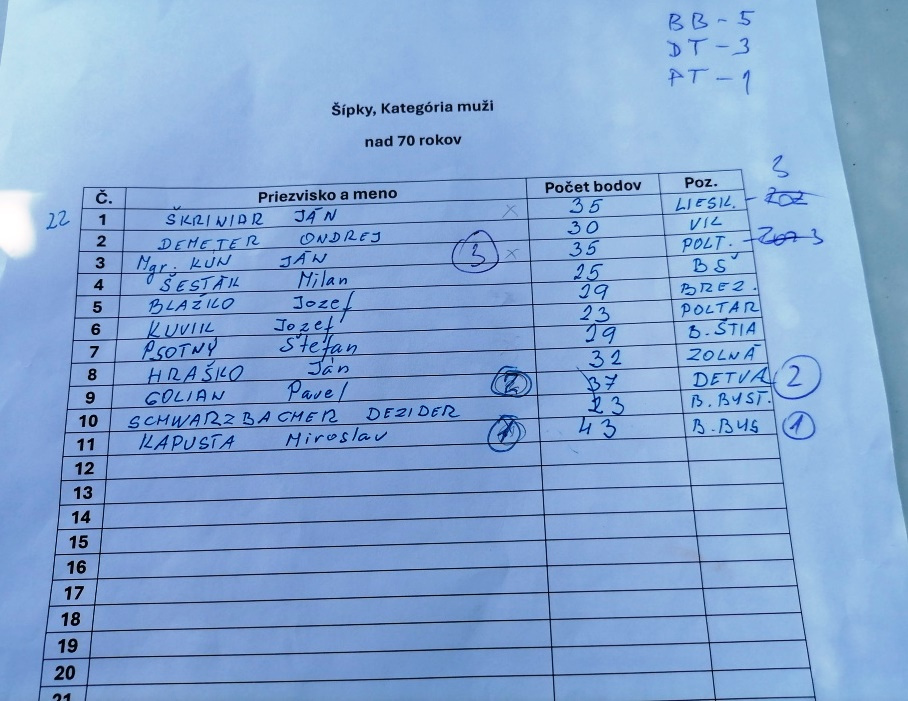 BB - 5
DT - 3
PT - 1
Šípky, Kategória muži
nad 70 rokov
Č. Priezvisko a meno Počet bodov Poz.
3
22 1 ŠKRINIAR JÁN x 35 LIESK. -
2 DEMETER ONDREJ 30 VIL
3 Mgr. KÚN JÁN 3 x 35 POLT. - 3
4 ŠESTÁK Milan 25 BŠ
5 BLAŽKO Jozef 29 BREZ.
6 KUVIK Jozef 23 POLTAR
7 PSOTNÝ Štefan 29 B. ŠTIA
8 HRAŠKO Ján 32 ZOLNÁ
9 GOLIAN Pavel 2 37 DETVA 2
10 SCHWARZBACHER DEZIDER 23 B. BYST.
11 KAPUSTA Miroslav 1 43 B. BYS 1
12
13
14
15
16
17
18
19
20
21